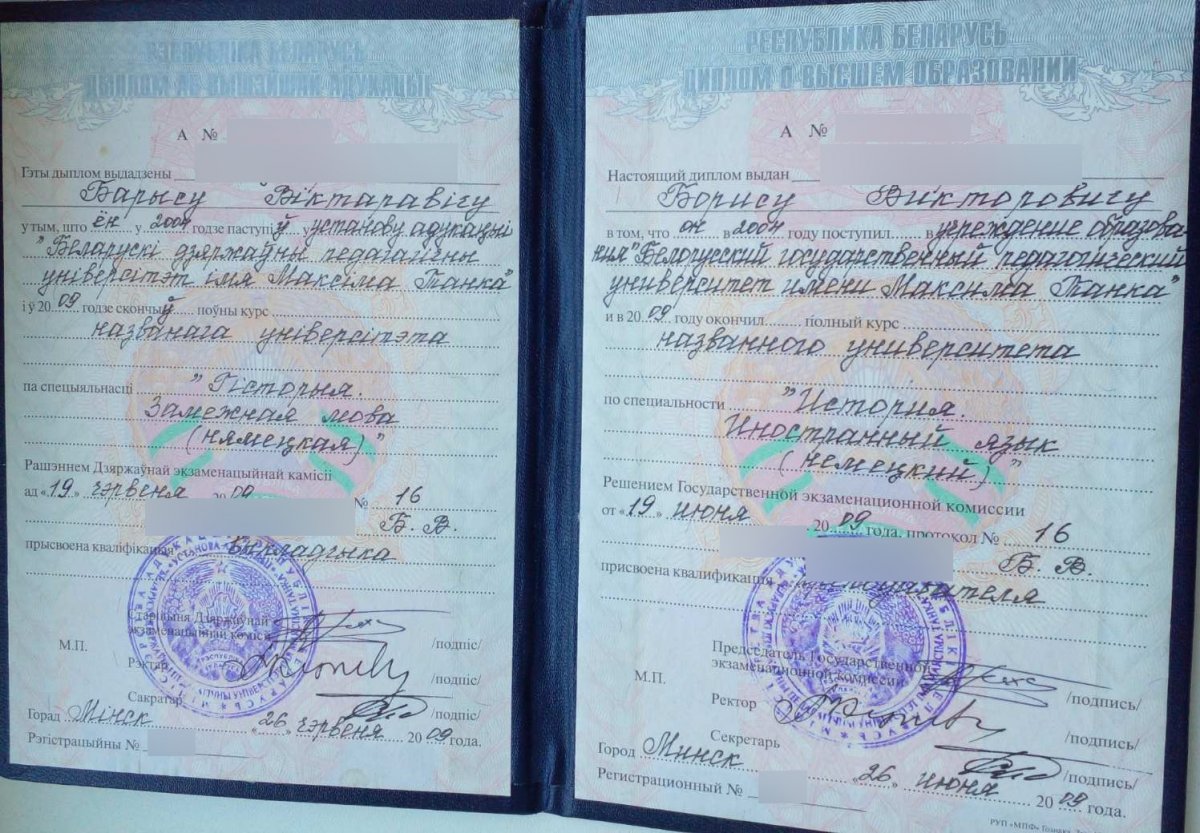 РЭСПУБЛІКА БЕЛАРУСЬ
ДЫПЛОМ АБ ВЫШЭЙШАЙ АДУКАЦЫІ
А №
Гэты дыплом выдадзены
Барысу Віктаравічу
у тым, што ён у 2004 годзе паступіў у установу адукацыі
"Беларускі дзяржаўны педагагічны
універсітэт імя Максіма Танка"
і ў 2009 годзе скончыў поўны курс
названага універсітэта
па спецыяльнасці "Гісторыя.
Замежная мова
(нямецкая)"
Рашэннем Дзяржаўнай экзаменацыйнай камісіі
ад «19» чэрвеня 2009 № 16
Б. В.
прысвоена кваліфікацыя Выкладчыка
Старшыня Дзяржаўнай
экзаменацыйнай камісіі /подпіс/
М.П.
Рэктар /подпіс/
Сакратар /подпіс/
Горад Мінск «26» чэрвеня 2009 года.
Рэгістрацыйны №
РЕСПУБЛИКА БЕЛАРУСЬ
ДИПЛОМ О ВЫСШЕМ ОБРАЗОВАНИИ
А №
Настоящий диплом выдан
Борису Викторовичу
в том, что он в 2004 году поступил в учреждение образова-
ния "Белорусский государственный педагогический
университет имени Максима Танка"
и в 2009 году окончил полный курс
названного университета
по специальности "История.
Иностранный язык
(немецкий)"
Решением Государственной экзаменационной комиссии
от «19» июня 2009 года, протокол № 16
Б. В.
присвоена квалификация преподавателя
Председатель Государственной
экзаменационной комиссии /подпись/
М.П.
Ректор /подпись/
Секретарь /подпись/
Город Минск «26» июня 2009 года.
Регистрационный №
РУП «МПФ»